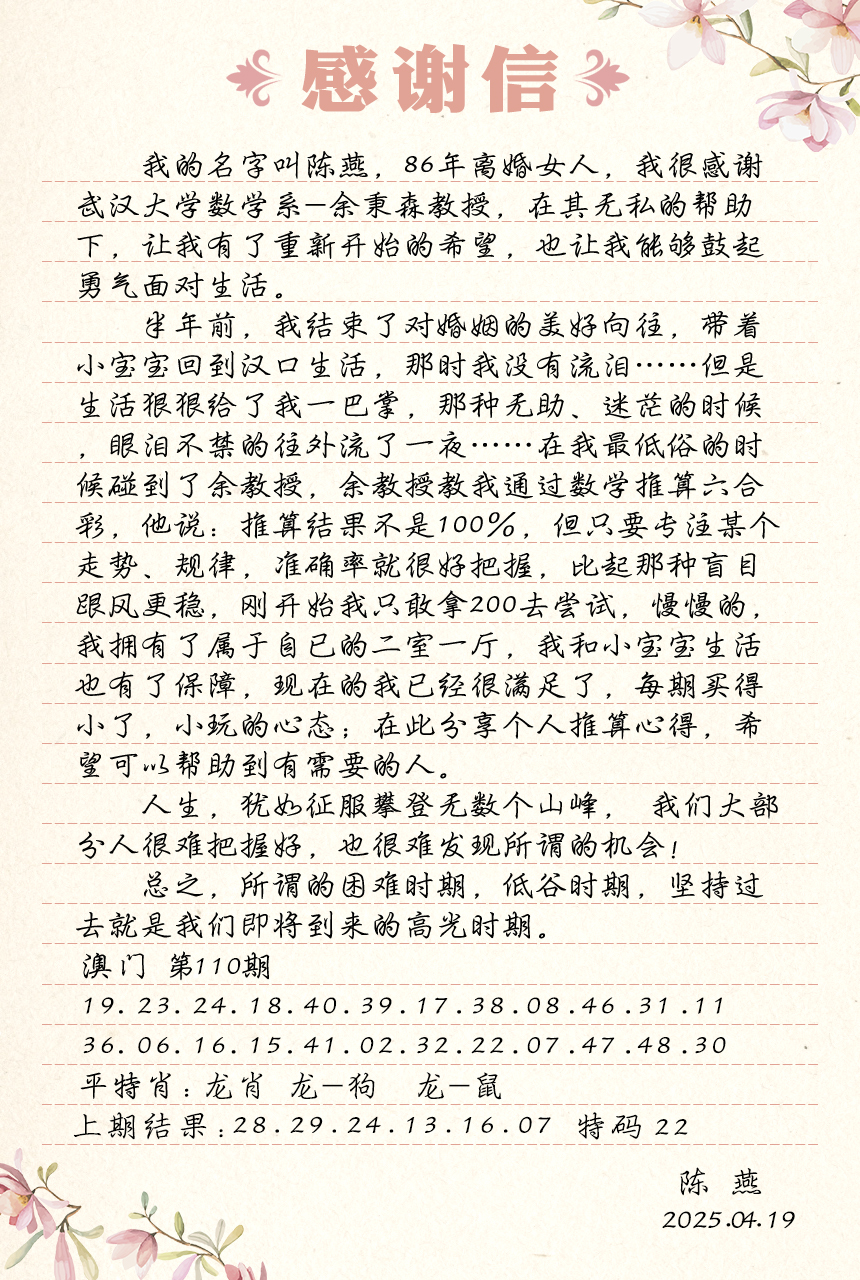 感谢信
我的名字叫陈燕，86年离婚女人，我很感谢
武汉大学数学系-余秉森教授，在其无私的帮助
下，让我有了重新开始的希望，也让我能够鼓起
勇气面对生活。
半年前，我结束了对婚姻的美好向往，带着
小宝宝回到汉口生活，那时我没有流泪……但是
生活狠狠给了我一巴掌，那种无助、迷茫的时候
，眼泪不禁的往外流了一夜……在我最低俗的时
候碰到了余教授，余教授教我通过数学推算六合
彩，他说：推算结果不是100%，但只要专注某个
走势、规律，准确率就很好把握，比起那种盲目
跟风更稳，刚开始我只敢拿200去尝试，慢慢的，
我拥有了属于自已的二室一厅，我和小宝宝生活
也有了保障，现在的我已经很满足了，每期买得
小了，小玩的心态；在此分享个人推算心得，希
望可以帮助到有需要的人。
人生，犹如征服攀登无数个山峰， 我们大部
分人很难把握好，也很难发现所谓的机会！
总之，所谓的困难时期，低谷时期，坚持过
去就是我们即将到来的高光时期。
澳门 第110期
19.23.24.18.40.39.17.38.08.46.31.11
36.06.16.15.41.02.32.22.07.47.48.30
平特肖：龙肖 龙-狗 龙-鼠
上期结果：28.29.24.13.16.07 特码 22
陈 燕
2025.04.19